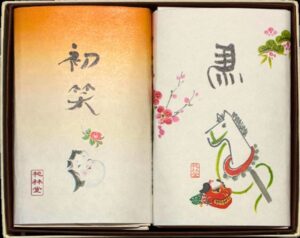 初笑
桃林堂
馬